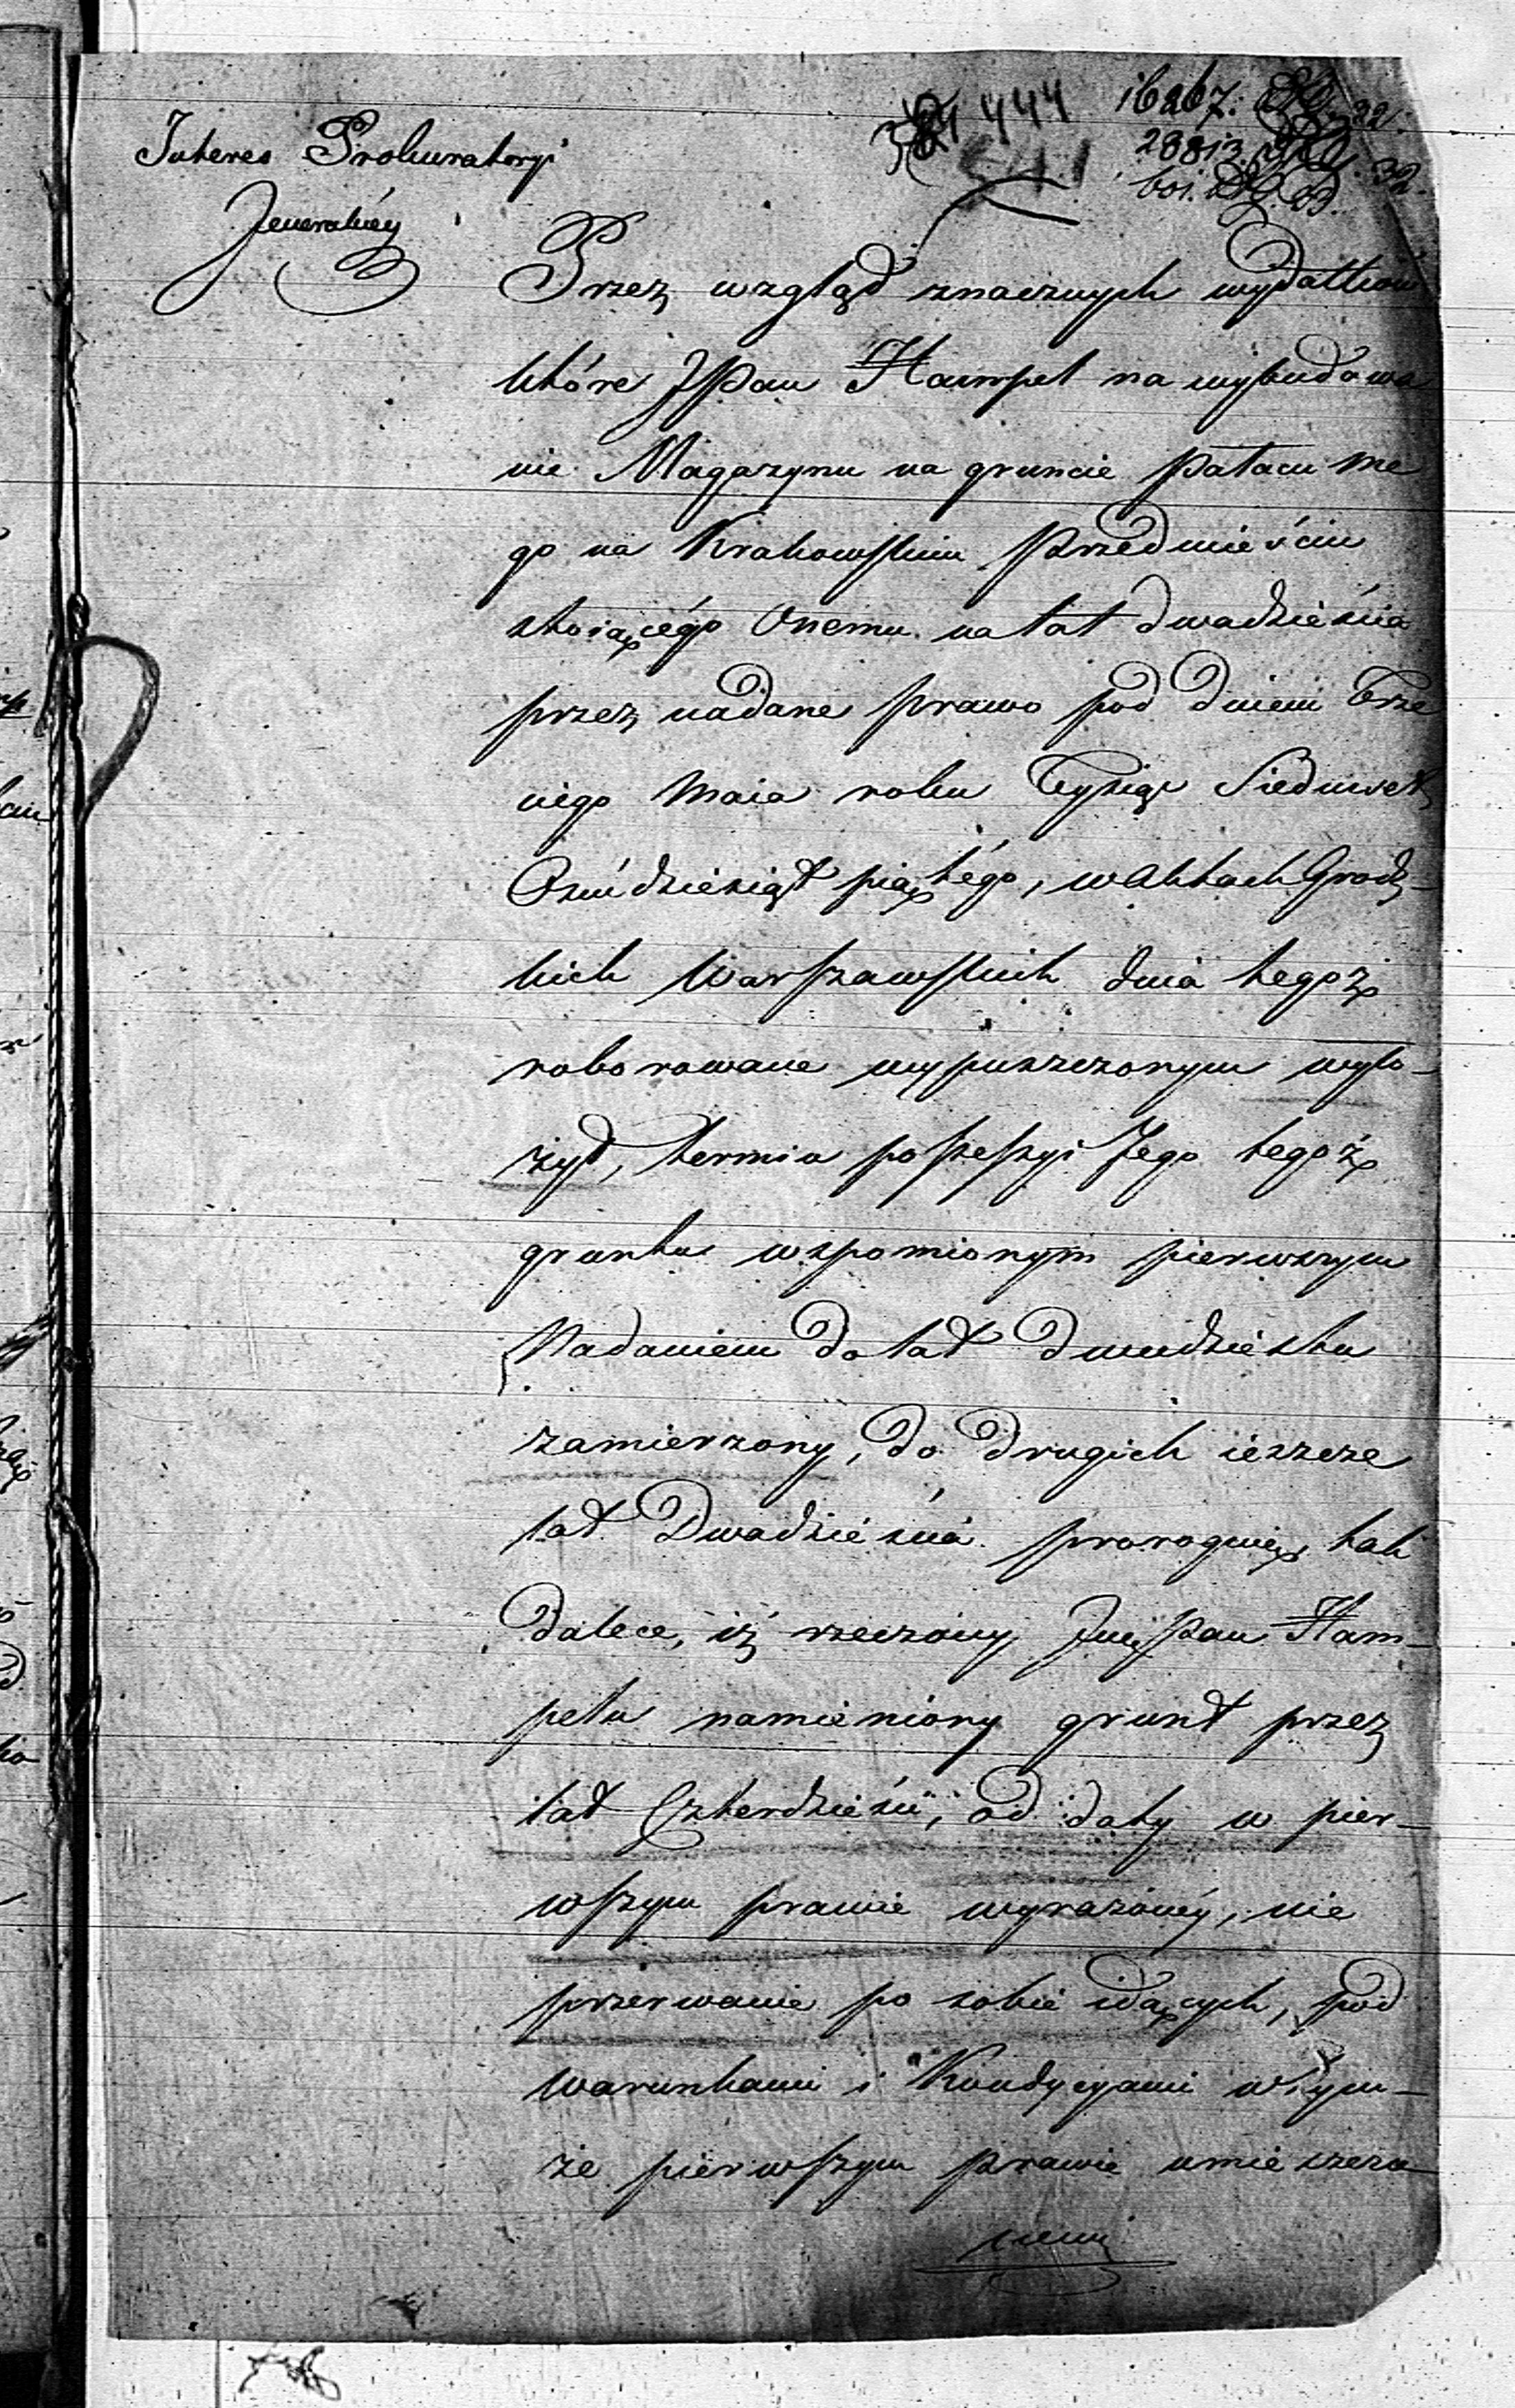 444
16267.
Interes Prokuratoryi
28813.
Jeneralnéy
601.
Przez wzgląd znacznych wydatków
które JPan Hampel na wybudowa
nie Magazynu na gruncie Pałacu me
go na Krakowskim Przedmieściu
stoiącégo Onemu na lat dwadzieścia
przez nadane prawo pod dniem Trze
ciego Maia roku Tysiąc Siedmset
Ośmdziesiąt piątégo, w Aktach Grodz-
kich Warszawskich dnia tegoż
roborowane wypuszczonym wyło-
żył, termin possessyi Jego tegoż
gruntu wspomionym pierwszym
Nadaniem do lat dwudziestu
zamierzony, do drugich ieszcze
lat Dwadzieścia proroguię, tak
dalece, iż rzeczony JmćPan Ham-
pel namieniony grunt przez
lat Czterdzieści, od daty w pier-
wszym prawie wyrażonéy, nie
przerwanie po sobie idących, pod
warunkami i Kondycyami w tym-
że pierwszym prawie umieszczo
nemi